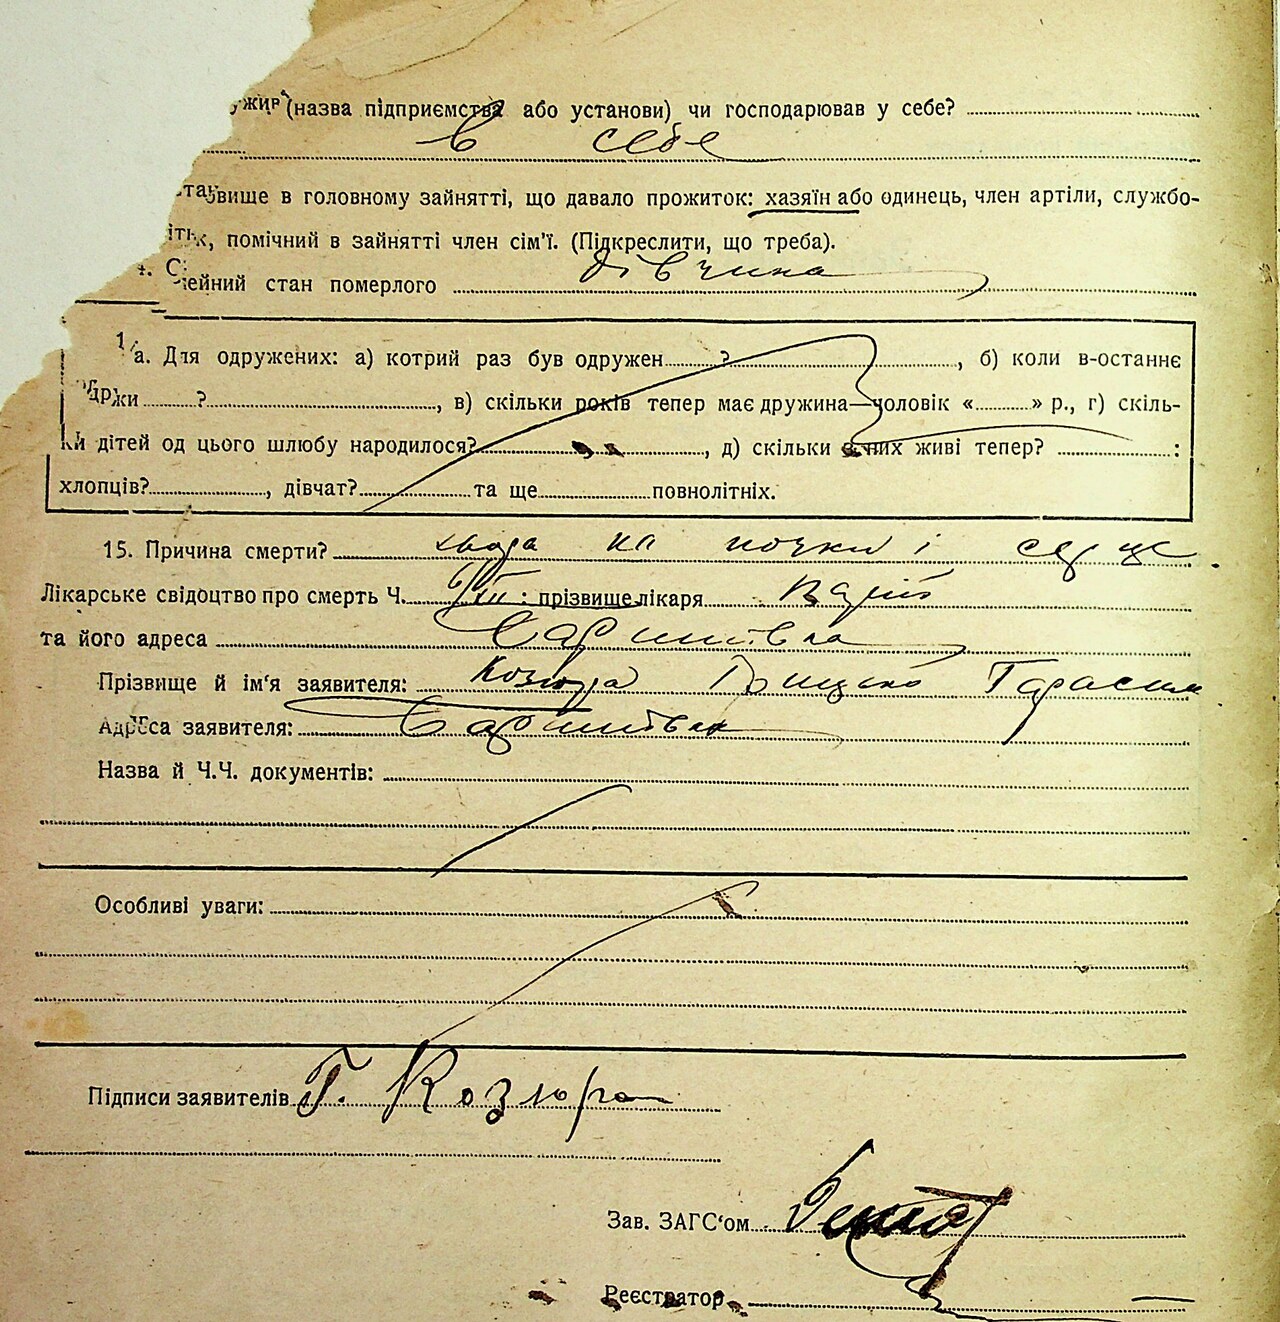 (назва підприємства або установи) чи господарював у себе?
в себе
вище в головному зайнятті, що давало прожиток: хазяїн або одинець, член артіли, службо-
помічний в зайнятті член сім'ї. (Підкреслити, що треба).
дівчина
ейний стан померлого
а. Для одружених: а) котрий раз був одружен ?, б) коли в-останнє
?, в) скільки років тепер має дружина—чоловік « » р., г) скіль-
ки дітей од цього шлюбу народилося?, д) скільки з них живі тепер? :
хлопців?, дівчат? та ще повнолітніх.
15. Причина смерти? хвора на почки і серце
Лікарське свідоцтво про смерть Ч. : прізвище лікаря
та його адреса
Прізвище й ім'я заявителя: Козюра Грицько Тарасим
Адреса заявителя:
Назва й Ч.Ч. документів:
Особливі уваги:
Підписи заявителів Г. Козюра
Зав. ЗАГС'ом
Реєстратор